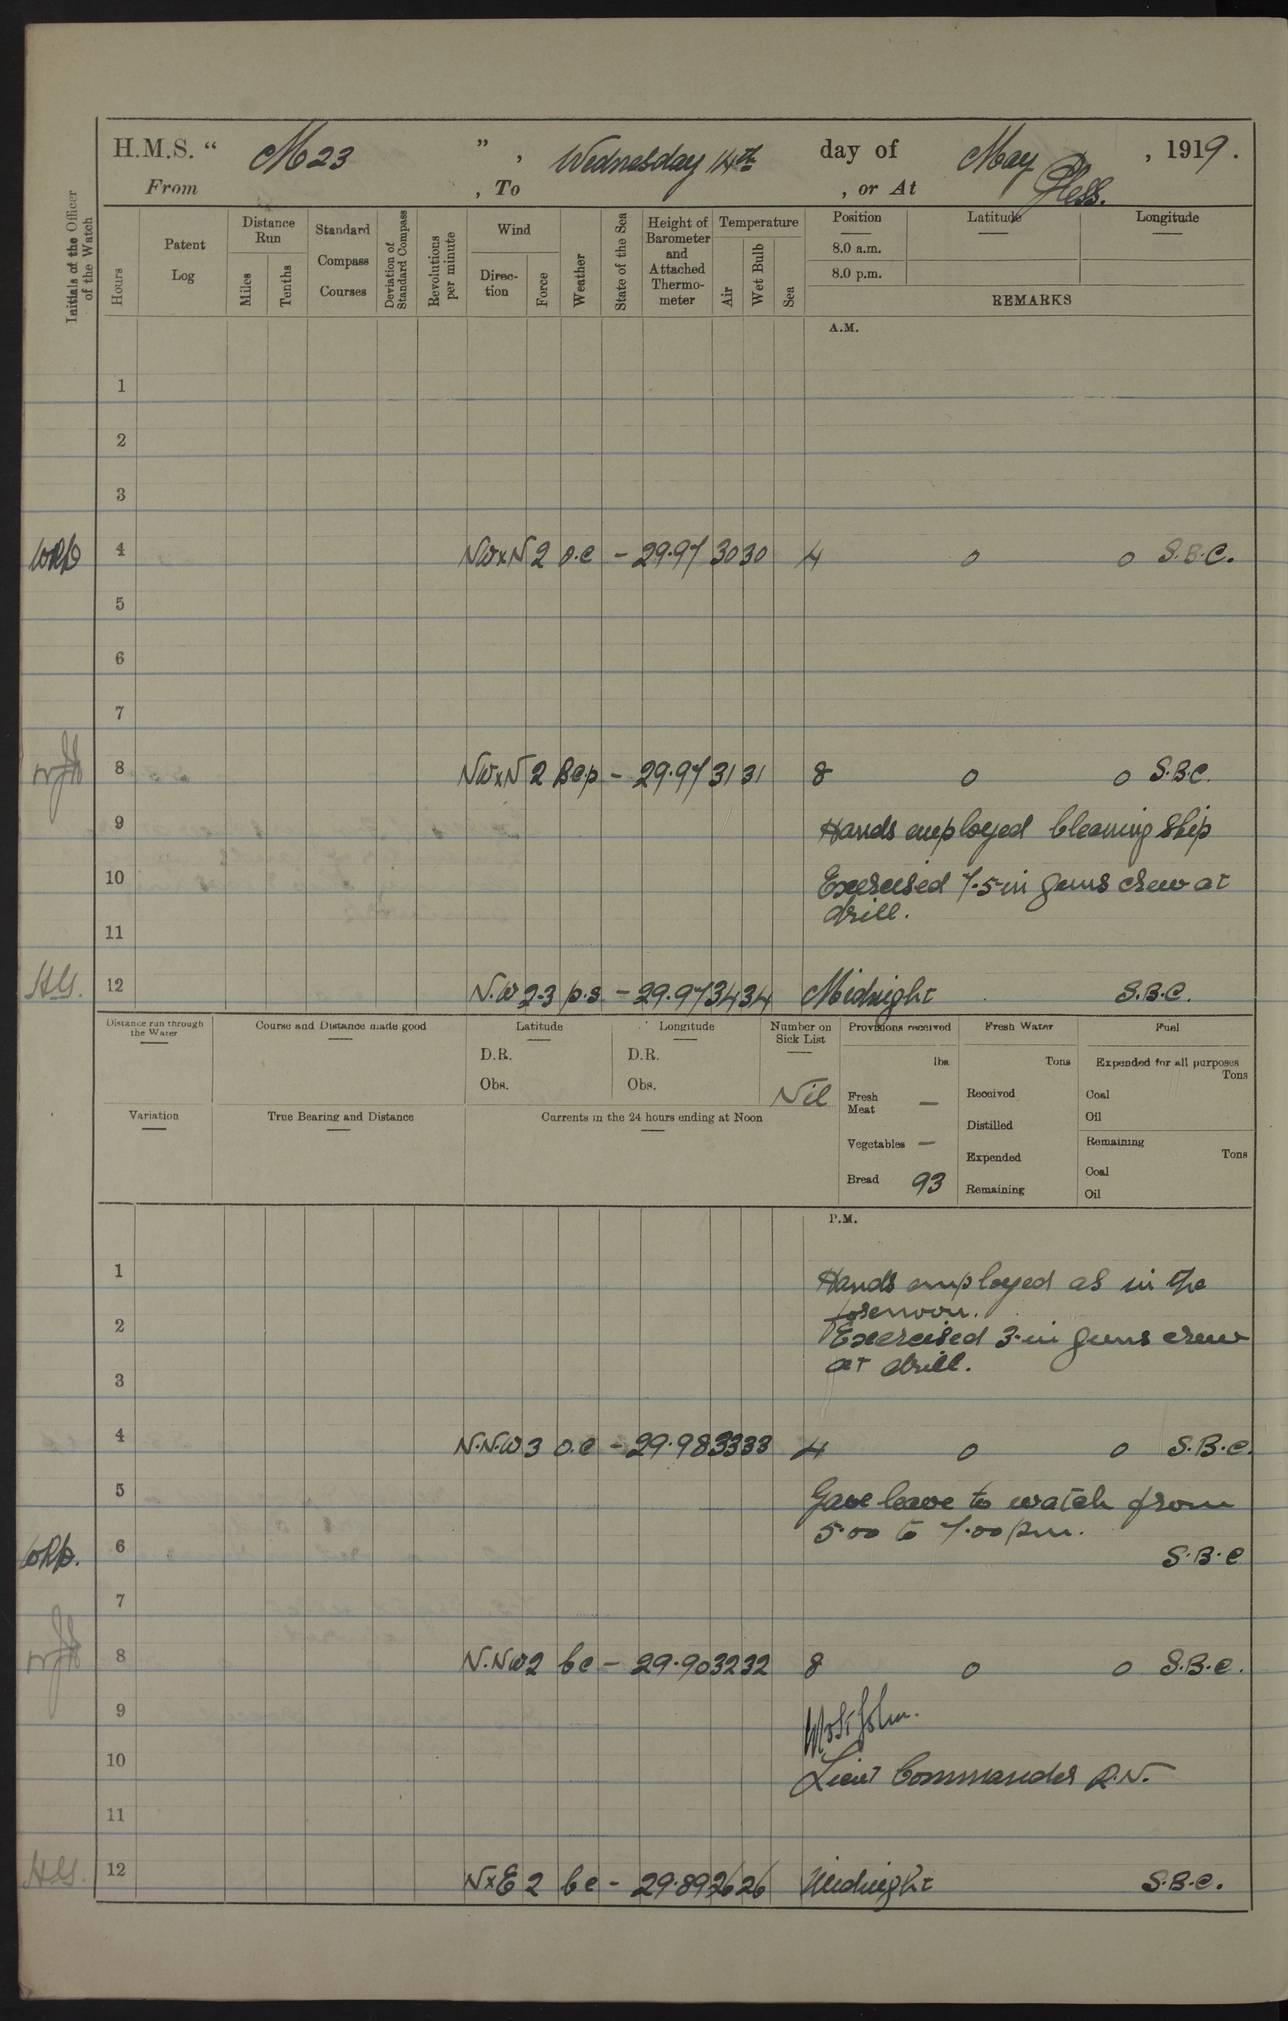 H.M.S. “ M23 ” , Wednesday 14th day of May , 1919.
From , To , or At
Initials of the Officer of the Watch
Hours
Patent Log
Distance Run
Miles
Tenths
Standard Compass Courses
Deviation of Standard Compass
Revolutions per minute
Wind
Direc-tion
Force
Weather
State of the Sea
Height of Barometer and Attached Thermo-meter
Temperature
Air
Wet Bulb
Sea
Position Latitude Longitude
8.0 a.m.
8.0 p.m.
REMARKS
A.M.
1
2
3
4 NWxN 2 o.c - 29.97 30 30 4 o o S.B.C.
5
6
7
8 NWxN 2 Bc.p - 29.97 31 31 8 o o S.B.C.
9 Hands employed Cleaning Ship
10 Exercised 7.5-in guns crew at
drill.
11
H.G. 12 N.W 2-3 p.s - 29.97 34 34 Midnight S.B.C.
Distance run through the Water
Course and Distance made good
Latitude
D.R.
Obs.
Longitude
D.R.
Obs.
Number on Sick List
Nil
Provisions received
lbs
Fresh Meat —
Vegetables —
Bread 93
Fresh Water
Tons
Received
Distilled
Expended
Remaining
Fuel
Expended for all purposes
Tons
Coal
Oil
Remaining
Tons
Coal
Oil
Variation
True Bearing and Distance
Currents in the 24 hours ending at Noon
P.M.
1 Hands employed as in the
forenoon.
2 Exercised 3-in guns crew
at drill.
3
4 N.N.W 3 o.c - 29.98 33 33 4 o o S.B.C.
5 Gave leave to watch from
5.00 to 7.00 pm.
6 S.B.C
7
8 N.NW 2 bc - 29.90 32 32 8 o o S.B.C.
9
10 Lieut Commander R.N.
11
H.G. 12 NxE 2 bc - 29.89 26 26 Midnight S.B.C.